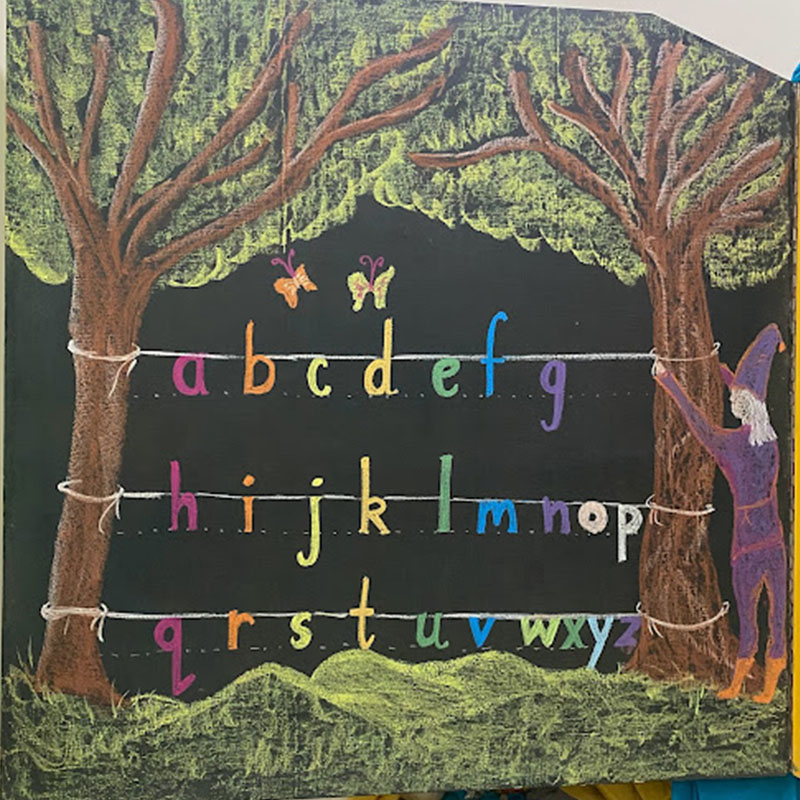 a b c d e f g
h i j k l m n o p
q r s t u v w x y z